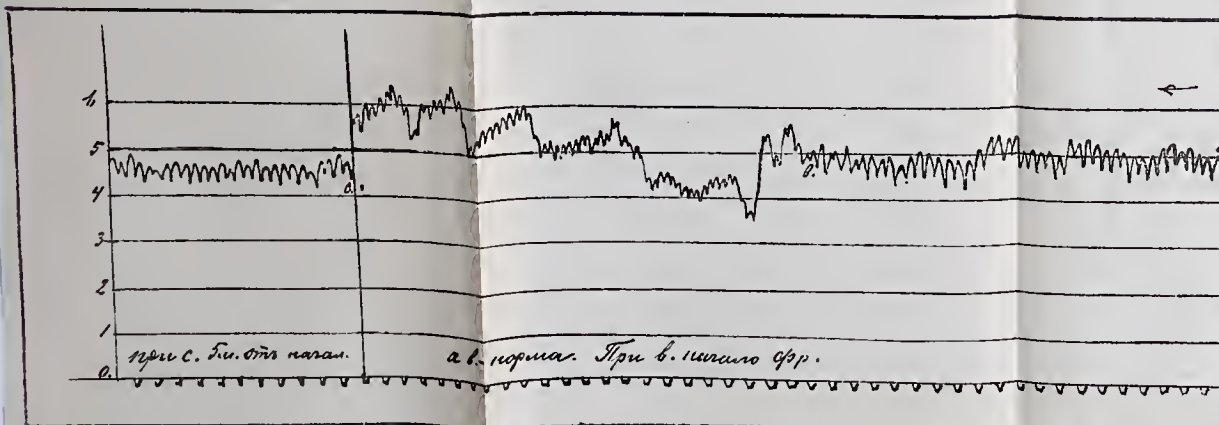 5
4
3
2
1
0.
при с. 5 м. отъ начал.
а в. норма. При в. начало фр.